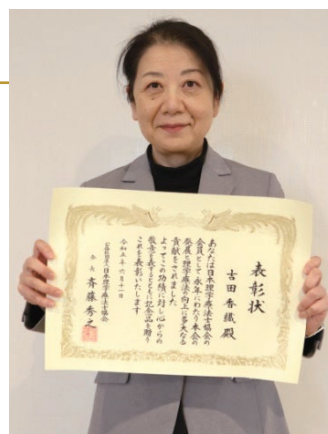 表彰状
古田 香織 殿
あなたは日本理学療法士協会の
会員として永年にわたり本会の
発展と理学療法の向上に多大なる
貢献をされました
よってこの功績に対し心からの
敬意を表するとともに記念品を贈り
これを表彰いたします
令和五年六月十一日
公益社団法人日本理学療法士協会
会長 斉藤秀之